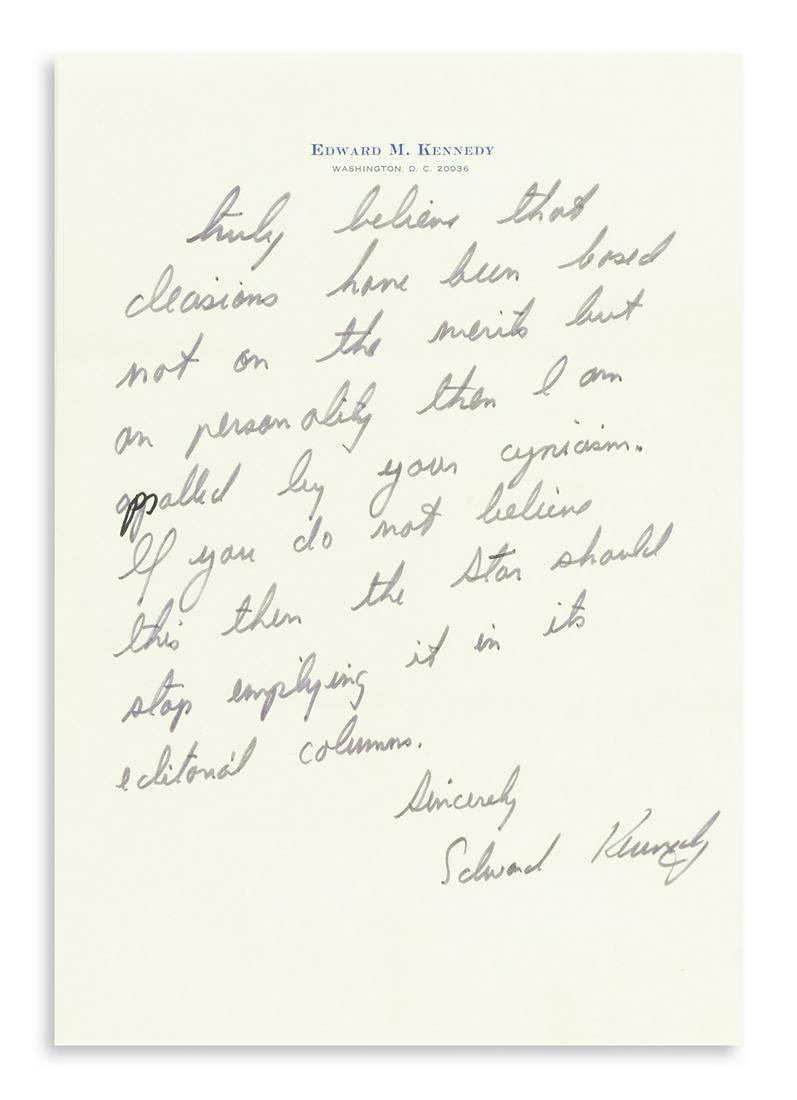 EDWARD M. KENNEDY
WASHINGTON, D. C. 20036
truly believe that
decisions have been based
not on the merits but
on personality then I am
appalled by your cynicism.
If you do not believe
this then the Star should
stop emplying it in its
editorial columns.
Sincerely
Edward Kennedy